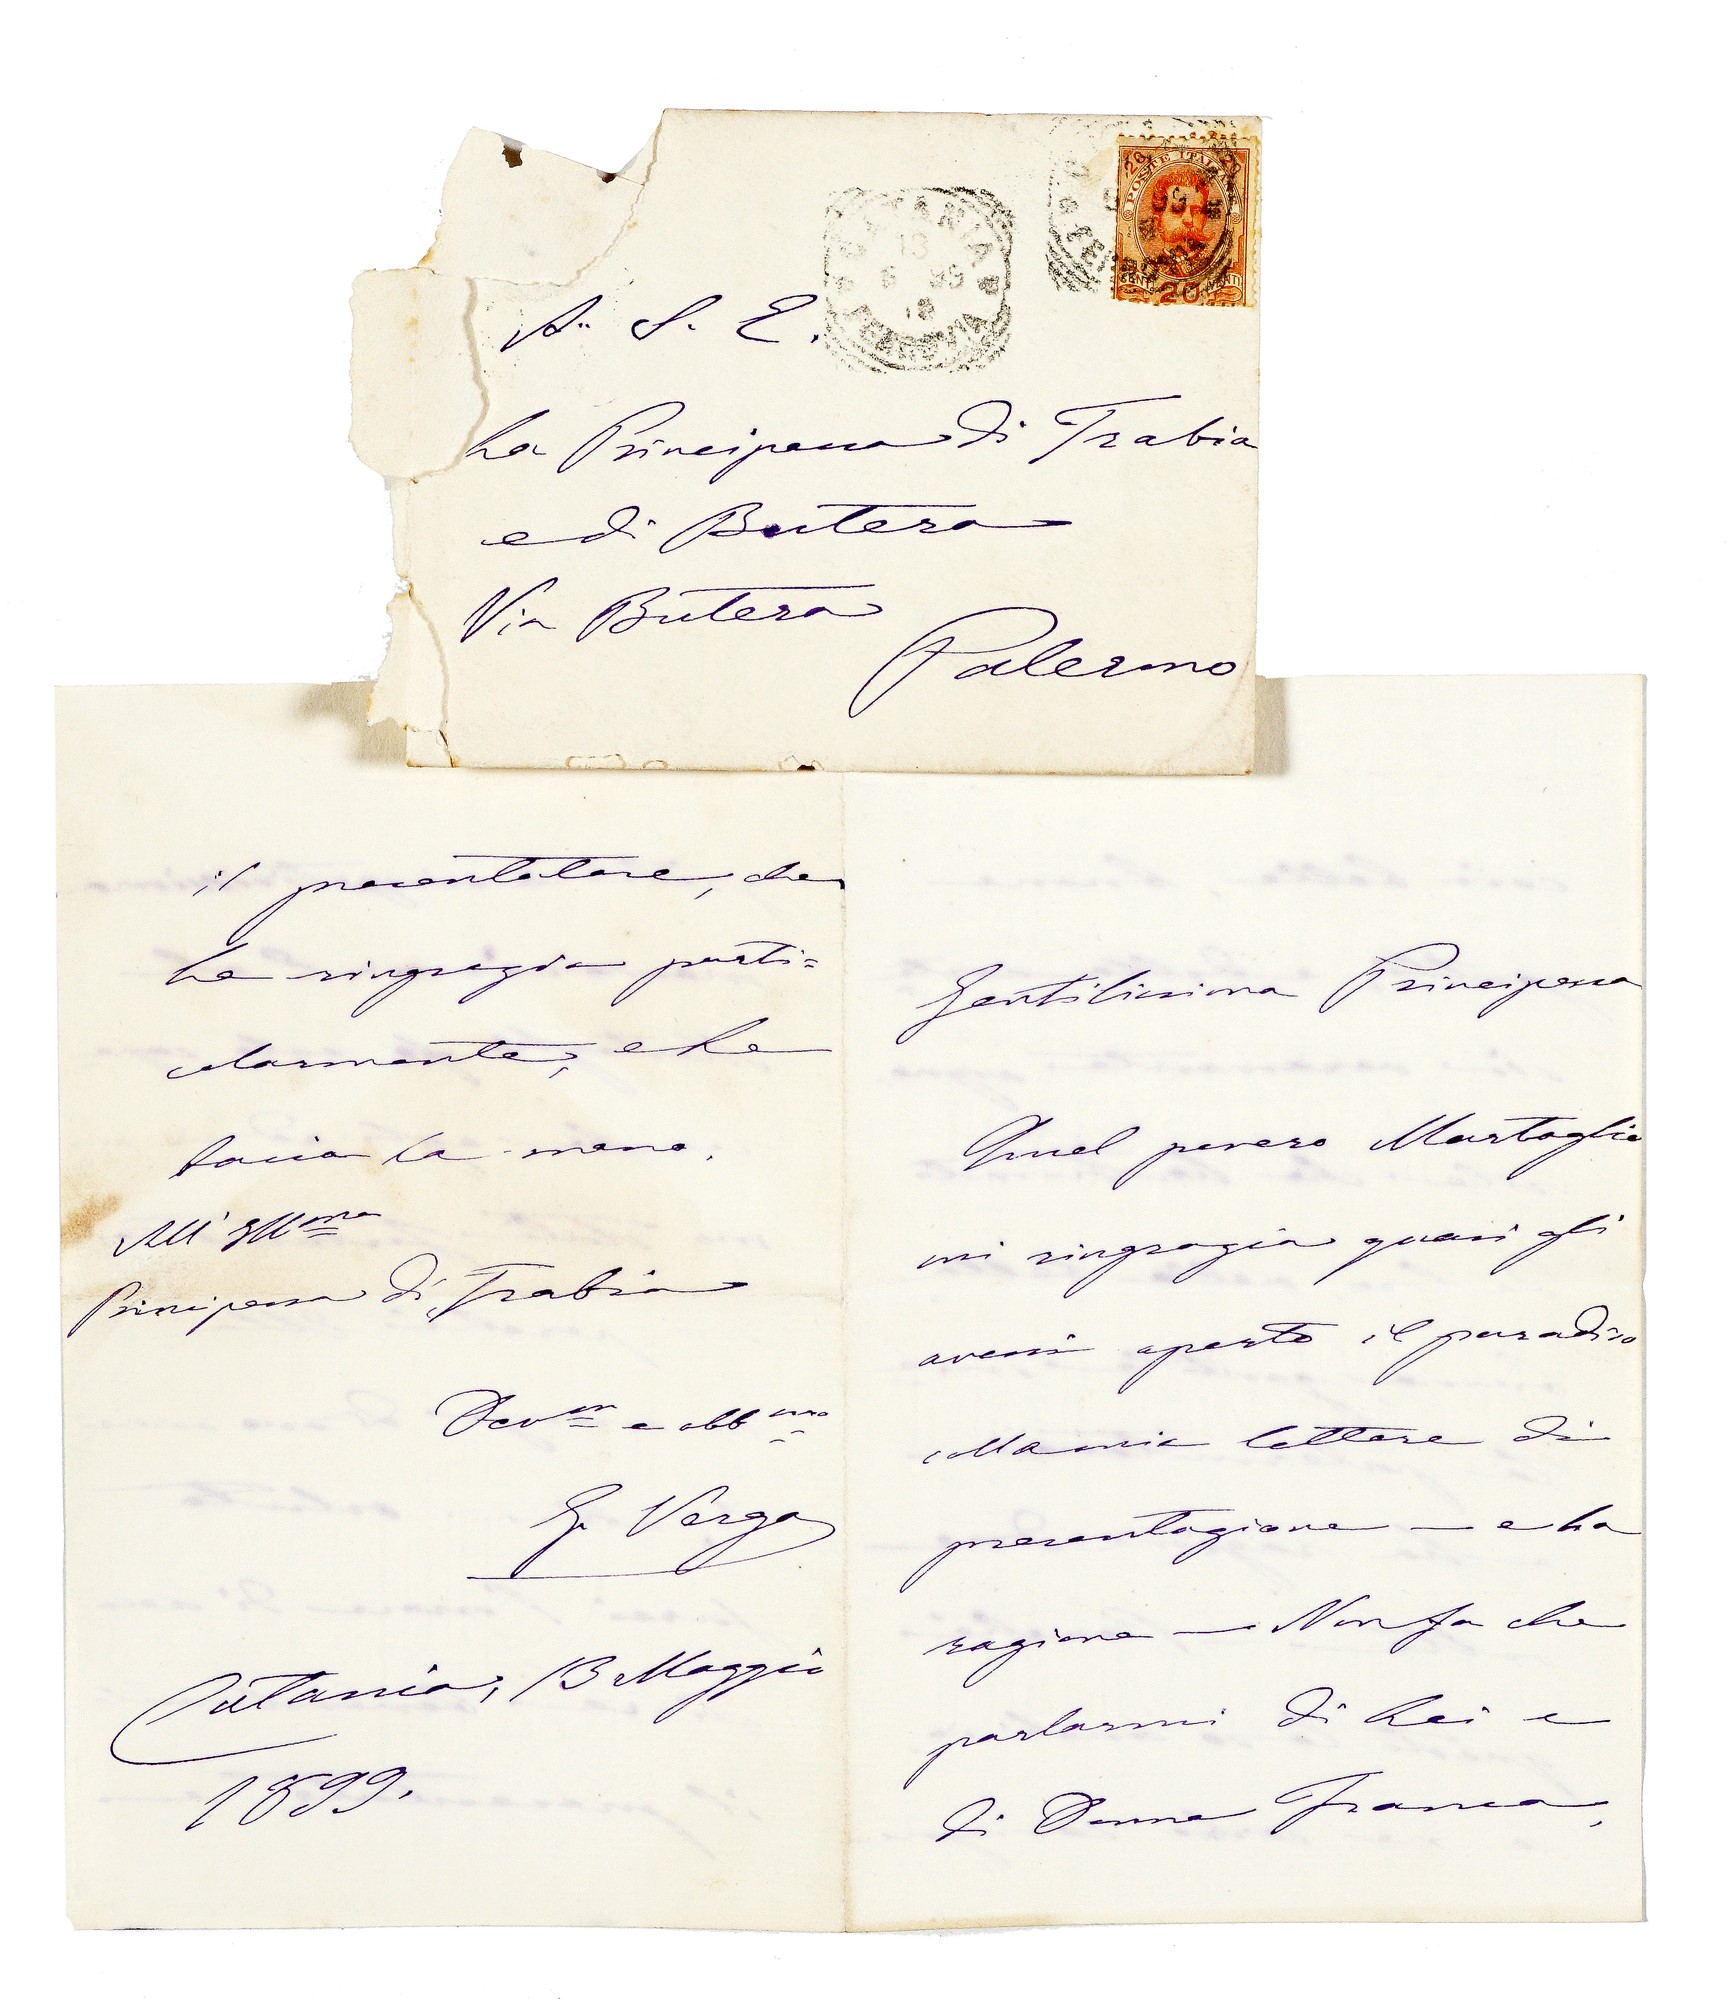 CATANIA
13
5 99
18
FERROVIA
POSTE ITALIANE
20 20
CENT. 20 VENTI
A. S. E.
La Principessa di Trabia
e di Butera
Via Butera
Palermo
Gentilissima Principessa
Quel povero Martoglio
mi ringrazia quasi gli
avessi aperto il paradiso
colla mia lettera di
presentazione — e ha
ragione — Non fa che
parlarmi di Lei e
di Donna Franca,
il presentatore, che
La ringrazia parti=
colarmente, e Le
bacia la mano.
All' Ill.ma
Principessa di Trabia
Dev.mo e obb.mo
G. Verga
Catania, 13 Maggio
1899.